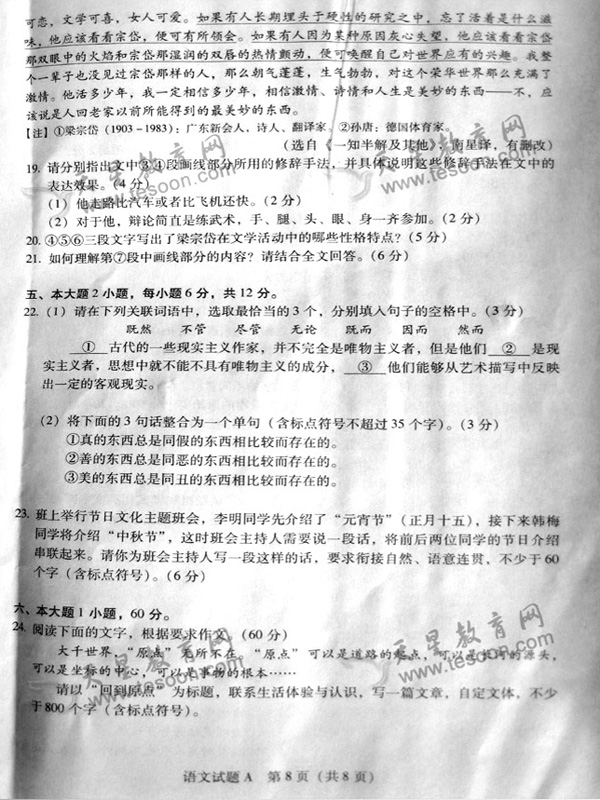 可恋，文学可喜，女人可爱。如果有人长期埋头于硬性的研究之中，忘了活着是什么滋
味，他应该看看宗岱，便可有所领会。如果有人因为某种原因灰心失望，他应该看看宗岱
那双眼中的火焰和宗岱那湿润的双唇的热情颤动，便可唤醒自己对世界应有的兴趣。我整
个一辈子也没见过宗岱那样的人，那么朝气蓬蓬，生气勃勃，对这个荣华世界那么充满了
激情。他活多少年，我一定相信多少年，相信激情、诗情和人生是美妙的东西——不，应
该说是人回老家以前所能得到的最美妙的东西。
【注】①梁宗岱（1903－1983）：广东新会人，诗人、翻译家。②孙唐：德国体育家。
（选自《一知半解及其他》，南星译，有删改）
19. 请分别指出文中③④段画线部分所用的修辞手法，并具体说明这些修辞手法在文中的
表达效果。（4 分）
（1）他走路比汽车或者比飞机还快。（2 分）
（2）对于他，辩论简直是练武术，手、腿、头、眼、身一齐参加。（2 分）
20. ④⑤⑥三段文字写出了梁宗岱在文学活动中的哪些性格特点？（5 分）
21. 如何理解第⑦段中画线部分的内容？请结合全文回答。（6 分）
五、本大题 2 小题，每小题 6 分，共 12 分。
22. （1）请在下列关联词语中，选取最恰当的 3 个，分别填入句子的空格中。（3 分）
既然 不管 尽管 无论 既而 因而 然而
① 古代的一些现实主义作家，并不完全是唯物主义者，但是他们 ② 是现
实主义者，思想中就不能不具有唯物主义的成分， ③ 他们能够从艺术描写中反映
出一定的客观现实。
（2）将下面的 3 句话整合为一个单句（含标点符号不超过 35 个字）。（3 分）
①真的东西总是同假的东西相比较而存在的。
②善的东西总是同恶的东西相比较而存在的。
③美的东西总是同丑的东西相比较而存在的。
23. 班上举行节日文化主题班会，李明同学先介绍了“元宵节”（正月十五），接下来韩梅
同学将介绍“中秋节”，这时班会主持人需要说一段话，将前后两位同学的节日介绍
串联起来。请你为班会主持人写一段这样的话，要求衔接自然、语意连贯，不少于 60
个字（含标点符号）。（6 分）
六、本大题 1 小题，60 分。
24. 阅读下面的文字，根据要求作文。（60 分）
大千世界，“原点”无所不在。“原点”可以是道路的起点，可以是长河的源头，
可以是坐标的中心，可以是事物的根本……
请以“回到原点”为标题，联系生活体验与认识，写一篇文章，自定文体，不少
于 800 个字（含标点符号）。
语文试题 A 第 8 页（共 8 页）
天星教育网
www.tesoon.com
天星教育网
www.tesoon.com
天星教育网
www.tesoon.com
天星教育网
www.tesoon.com